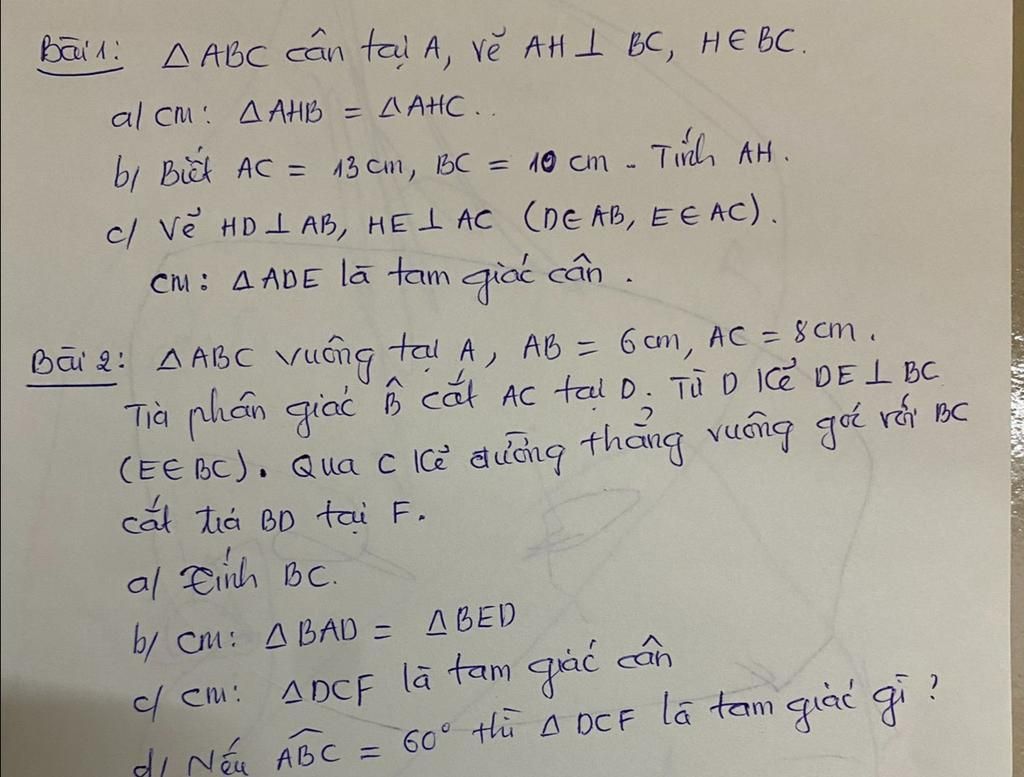 Bài 1: △ABC cân tại A, vẽ AH ⊥ BC, H ∈ BC.
a/ CM: △AHB = △AHC..
b/ Biết AC = 13 cm, BC = 10 cm - Tính AH.
c/ Vẽ HD ⊥ AB, HE ⊥ AC (D ∈ AB, E ∈ AC).
CM: △ADE là tam giác cân.
Bài 2: △ABC vuông tại A, AB = 6 cm, AC = 8 cm.
Tia phân giác B̂ cắt AC tại D. Từ D kẻ DE ⊥ BC
(E ∈ BC). Qua C kẻ đường thẳng vuông góc với BC
cắt tia BD tại F.
a/ Tính BC.
b/ CM: △BAD = △BED
c/ CM: △DCF là tam giác cân
d/ Nếu ABC̑ = 60° thì △DCF là tam giác gì?